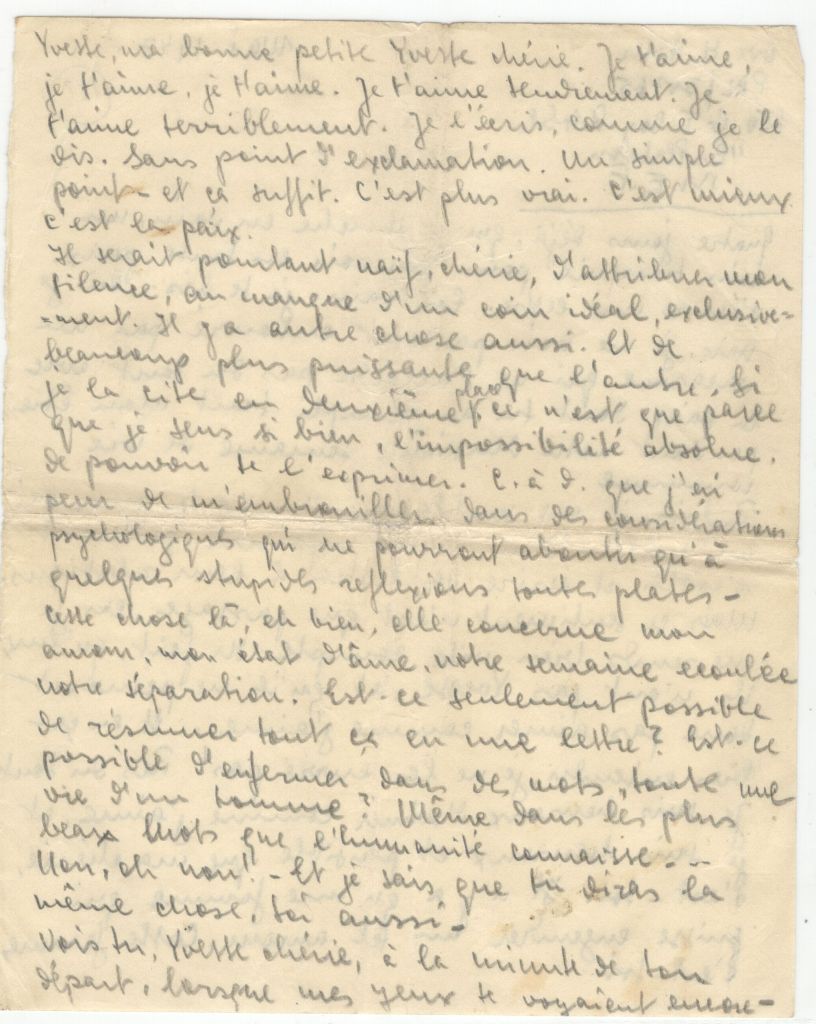 Yvette, ma bonne petite Yvette chérie. Je t'aime,
je t'aime, je t'aime. Je t'aime tendrement. Je
t'aime terriblement. Je l'écris, comme je le
dis. Sans point d'exclamation. Un simple
point - et ça suffit. C'est plus vrai. C'est mieux.
C'est la paix.
Il serait pourtant naïf, chérie, d'attribuer mon
silence, au manque d'un coin idéal, exclusive=
=ment. Il y a autre chose aussi. Et de
beaucoup plus puissante que l'autre. Si
je la cite en deuxième place, ce n'est que parce
que je sens si bien, l'impossibilité absolue,
de pouvoir te l'exprimer. C. à d. que j'ai
peur de m'embrouiller dans des considérations
psychologiques qui ne pourront aboutir qu'à
quelques stupides reflexions toutes plates -
Cette chose là, eh bien, elle concerne mon
amour, mon état d'âme, notre semaine ecoulée
notre séparation. Est-ce seulement possible
de résumer tout ça en une lettre? Est-ce
possible d'enfermer dans des mots, toute une
vie d'un homme? Même dans les plus
beaux mots que l'humanité connaisse - -
Non, oh non! - Et je sais que tu diras la
même chose, toi aussi -
Vois tu, Yvette chérie, à la minute de ton
départ, lorsque mes yeux te voyaient encore -